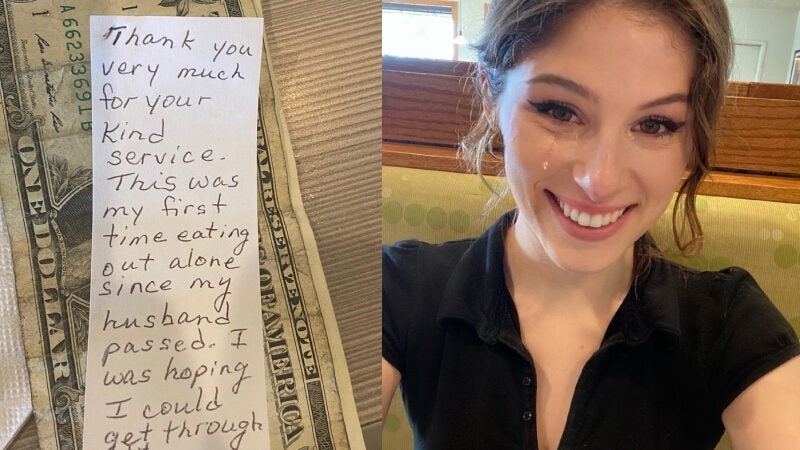 Thank you
very much
for your
kind
service.
This was
my first
time eating
out alone
since my
husband
passed. I
was hoping
I could
get through
A 6623368
ONE DOLLAR
RAL RESERVE NOTE
S OF AMERICA